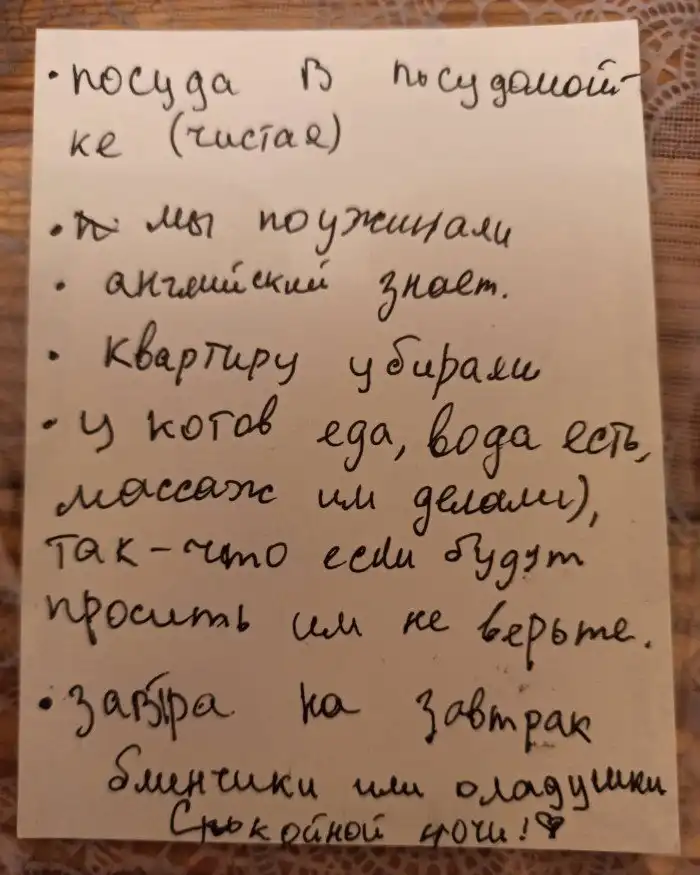 • посуда в посудомой-
ке (чистая)
• мы поужинали
• английский знает.
• квартиру убирали
• у котов еда, вода есть,
массаж им делали),
так-что если будут
просить им не верьте.
• завтра на завтрак
блинчики или оладушки
Спокойной ночи! ♡